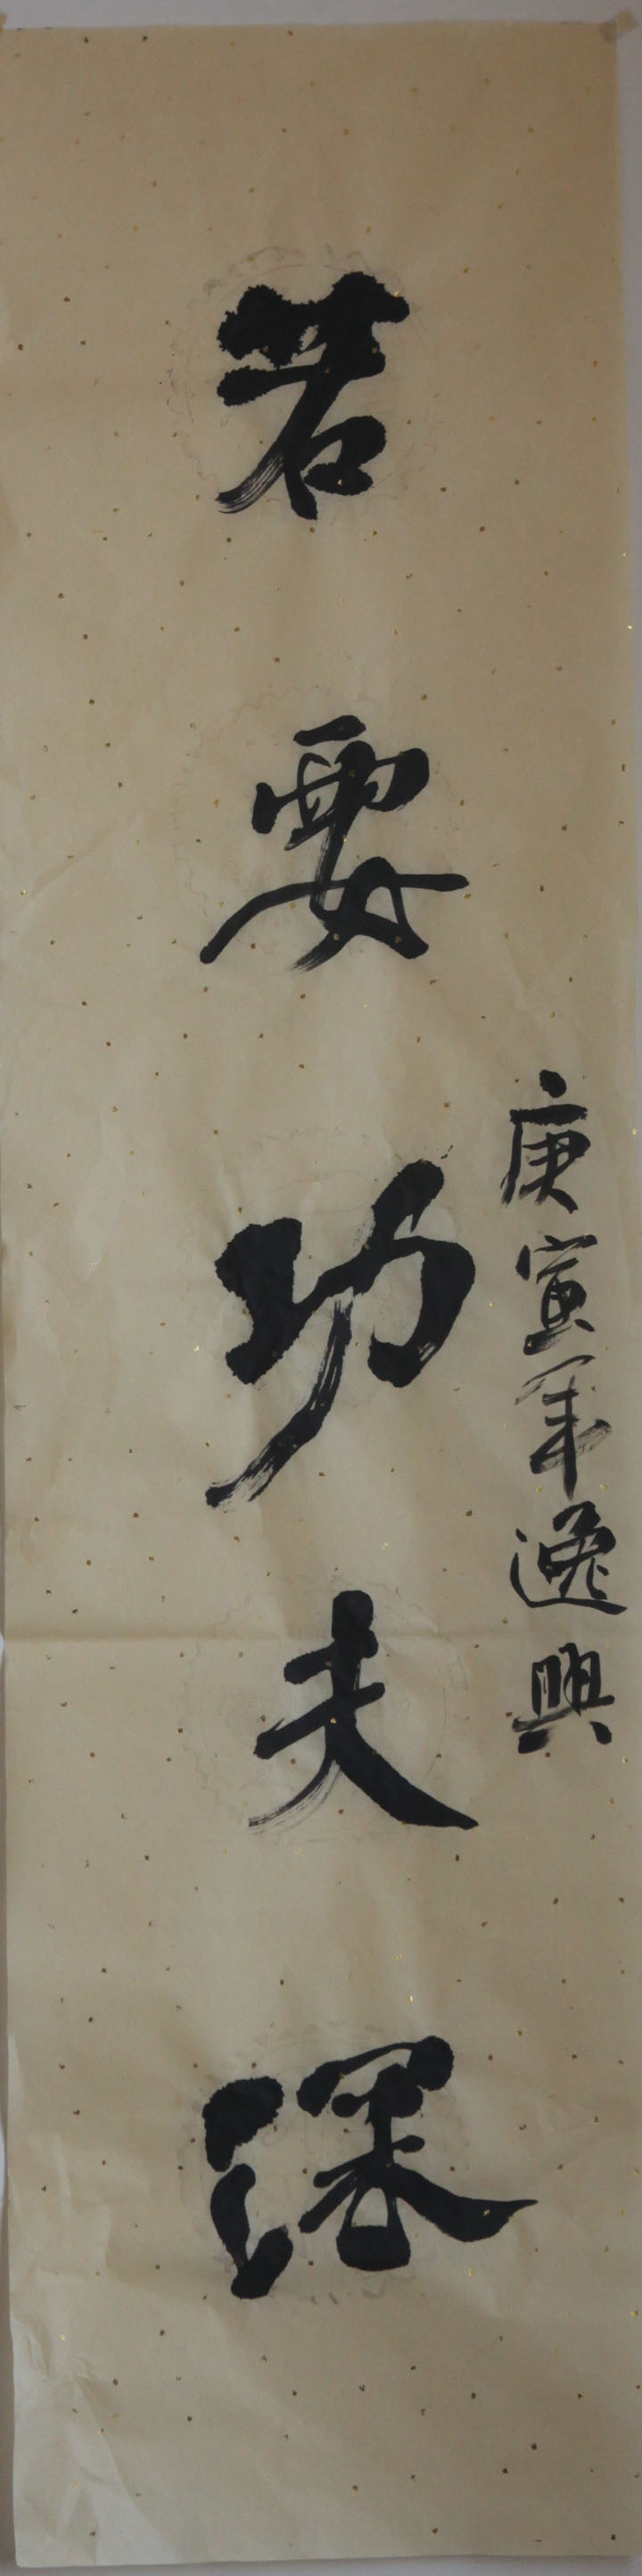 庚寅年逸興
若要功夫深